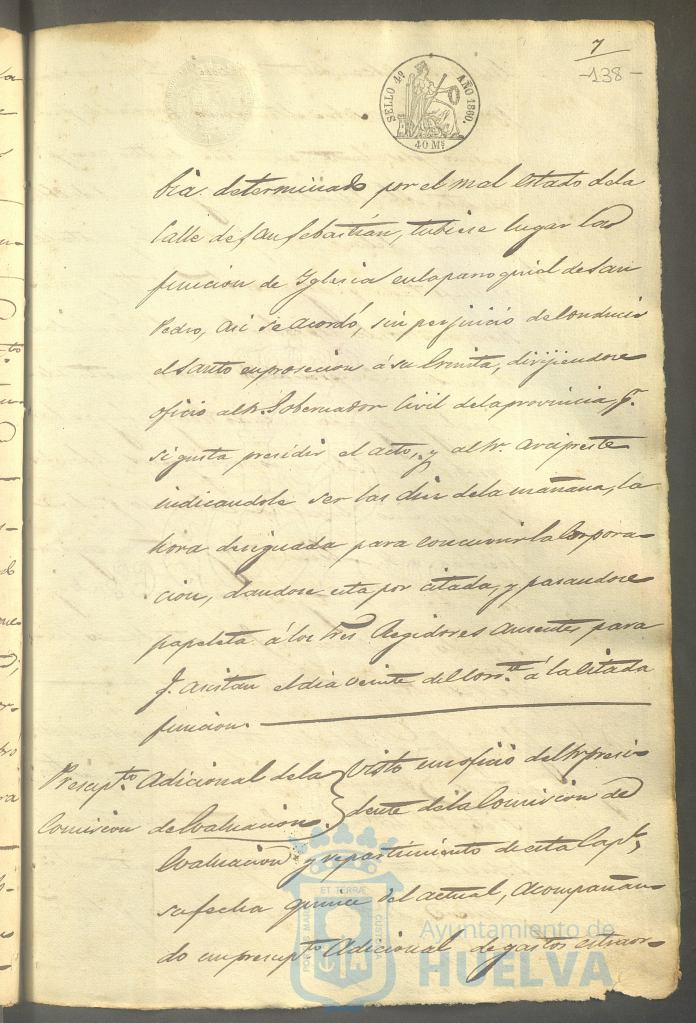 7
-138-
SELLO 4º AÑO 1860.
40 Mˢ
bia determinado por el mal estado de la
Calle de San Sebastián, tubiese lugar la
funcion de Iglesia en la parroquial de San
Pedro, asi se acordo, sin perjuicio de conducir
el Santo en prosecion á su Ermita, dirijiendose
oficio al Sr. Gobernador Civil de la provincia, p.
si gusta presidir el acto, y al Sr. Arcipreste
indicandole ser las diez de la mañana, la
hora designada para concurrir la Corpora-
cion, dandose esta por citada, y pasandose
papeleta á los tres Regidores ausentes, para
q. asistan el dia veinte del corr.te á la citada
funcion.
Presup.to Adicional de la
Comision de Evaluacion.
Visto un oficio del Sr. presi-
dente de la Comision de
Evaluacion y repartimiento de esta Cap.l,
su fecha quince del actual, acompañan-
do un presup.to Adicional de gastos estraor-
PORTUS MARIS ET TERRÆ CUSTODIA
Ayuntamiento de
HUELVA